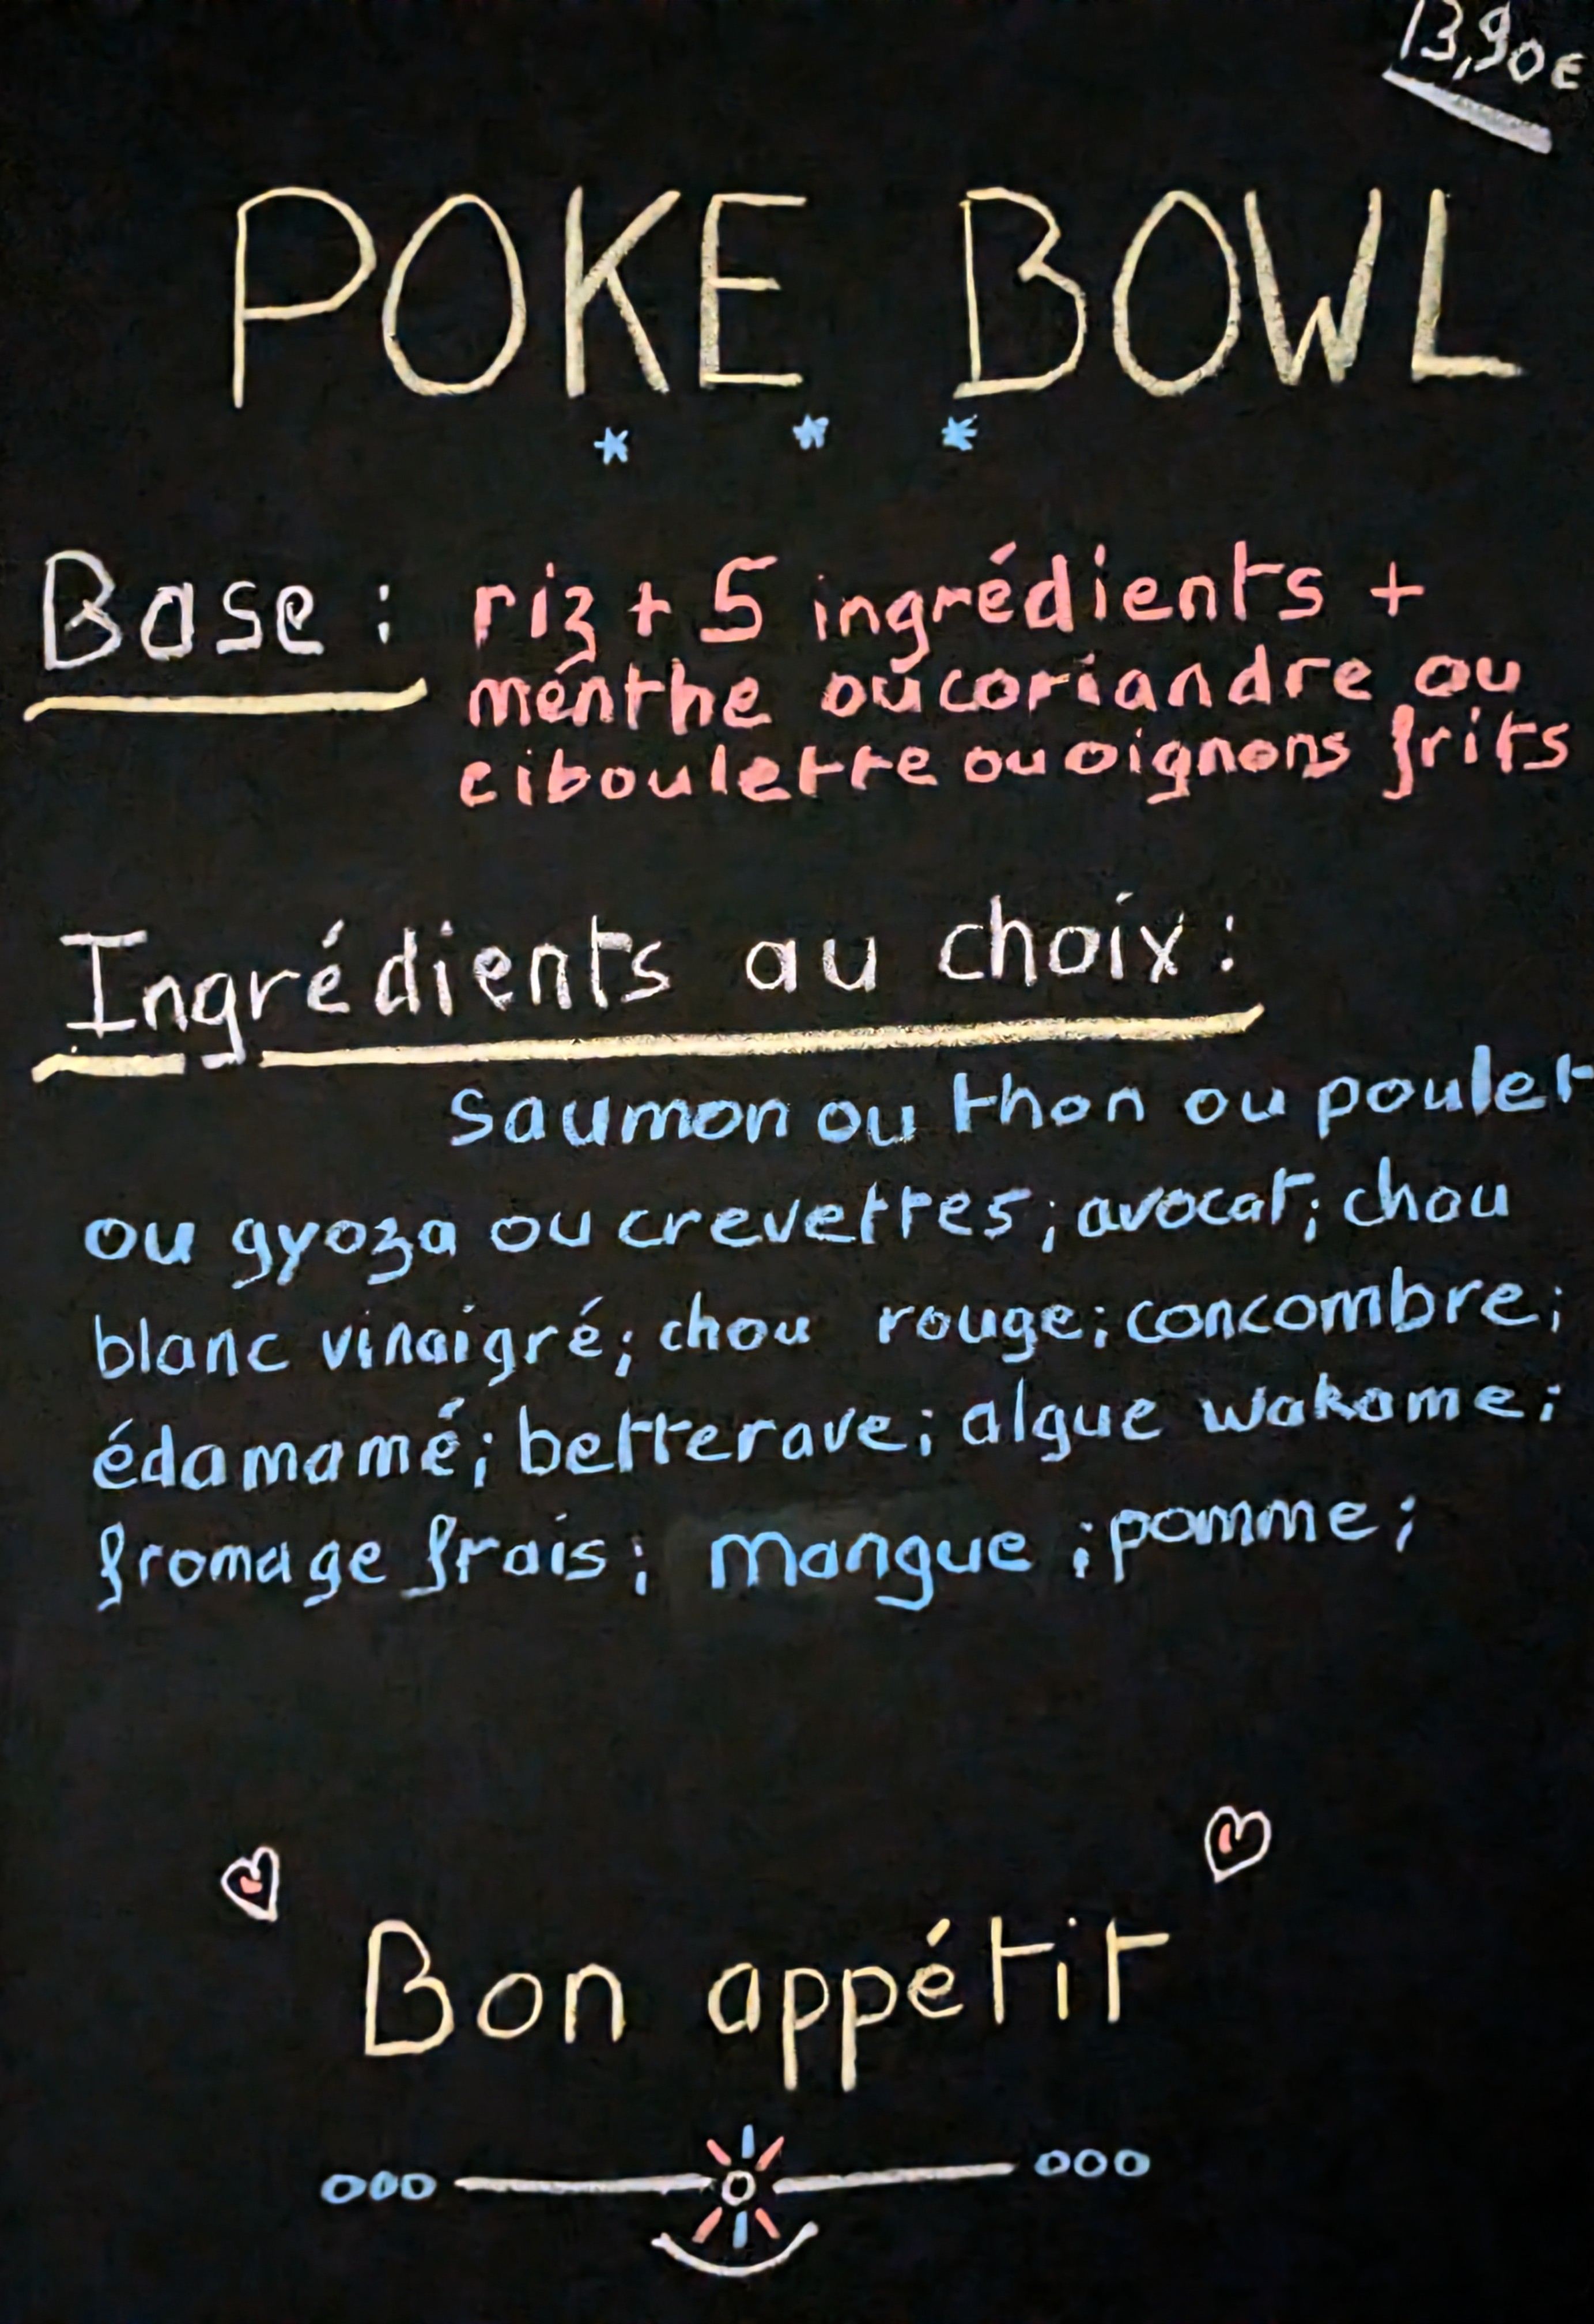 13,90€
POKE BOWL
Base : riz + 5 ingrédients +
menthe ou coriandre ou
ciboulette ou oignons frits
Ingrédients au choix :
saumon ou thon ou poulet
ou gyoza ou crevettes ; avocat ; chou
blanc vinaigré ; chou rouge ; concombre ;
édamamé ; betterave ; algue wakame ;
fromage frais ; mangue ; pomme ;
Bon appétit